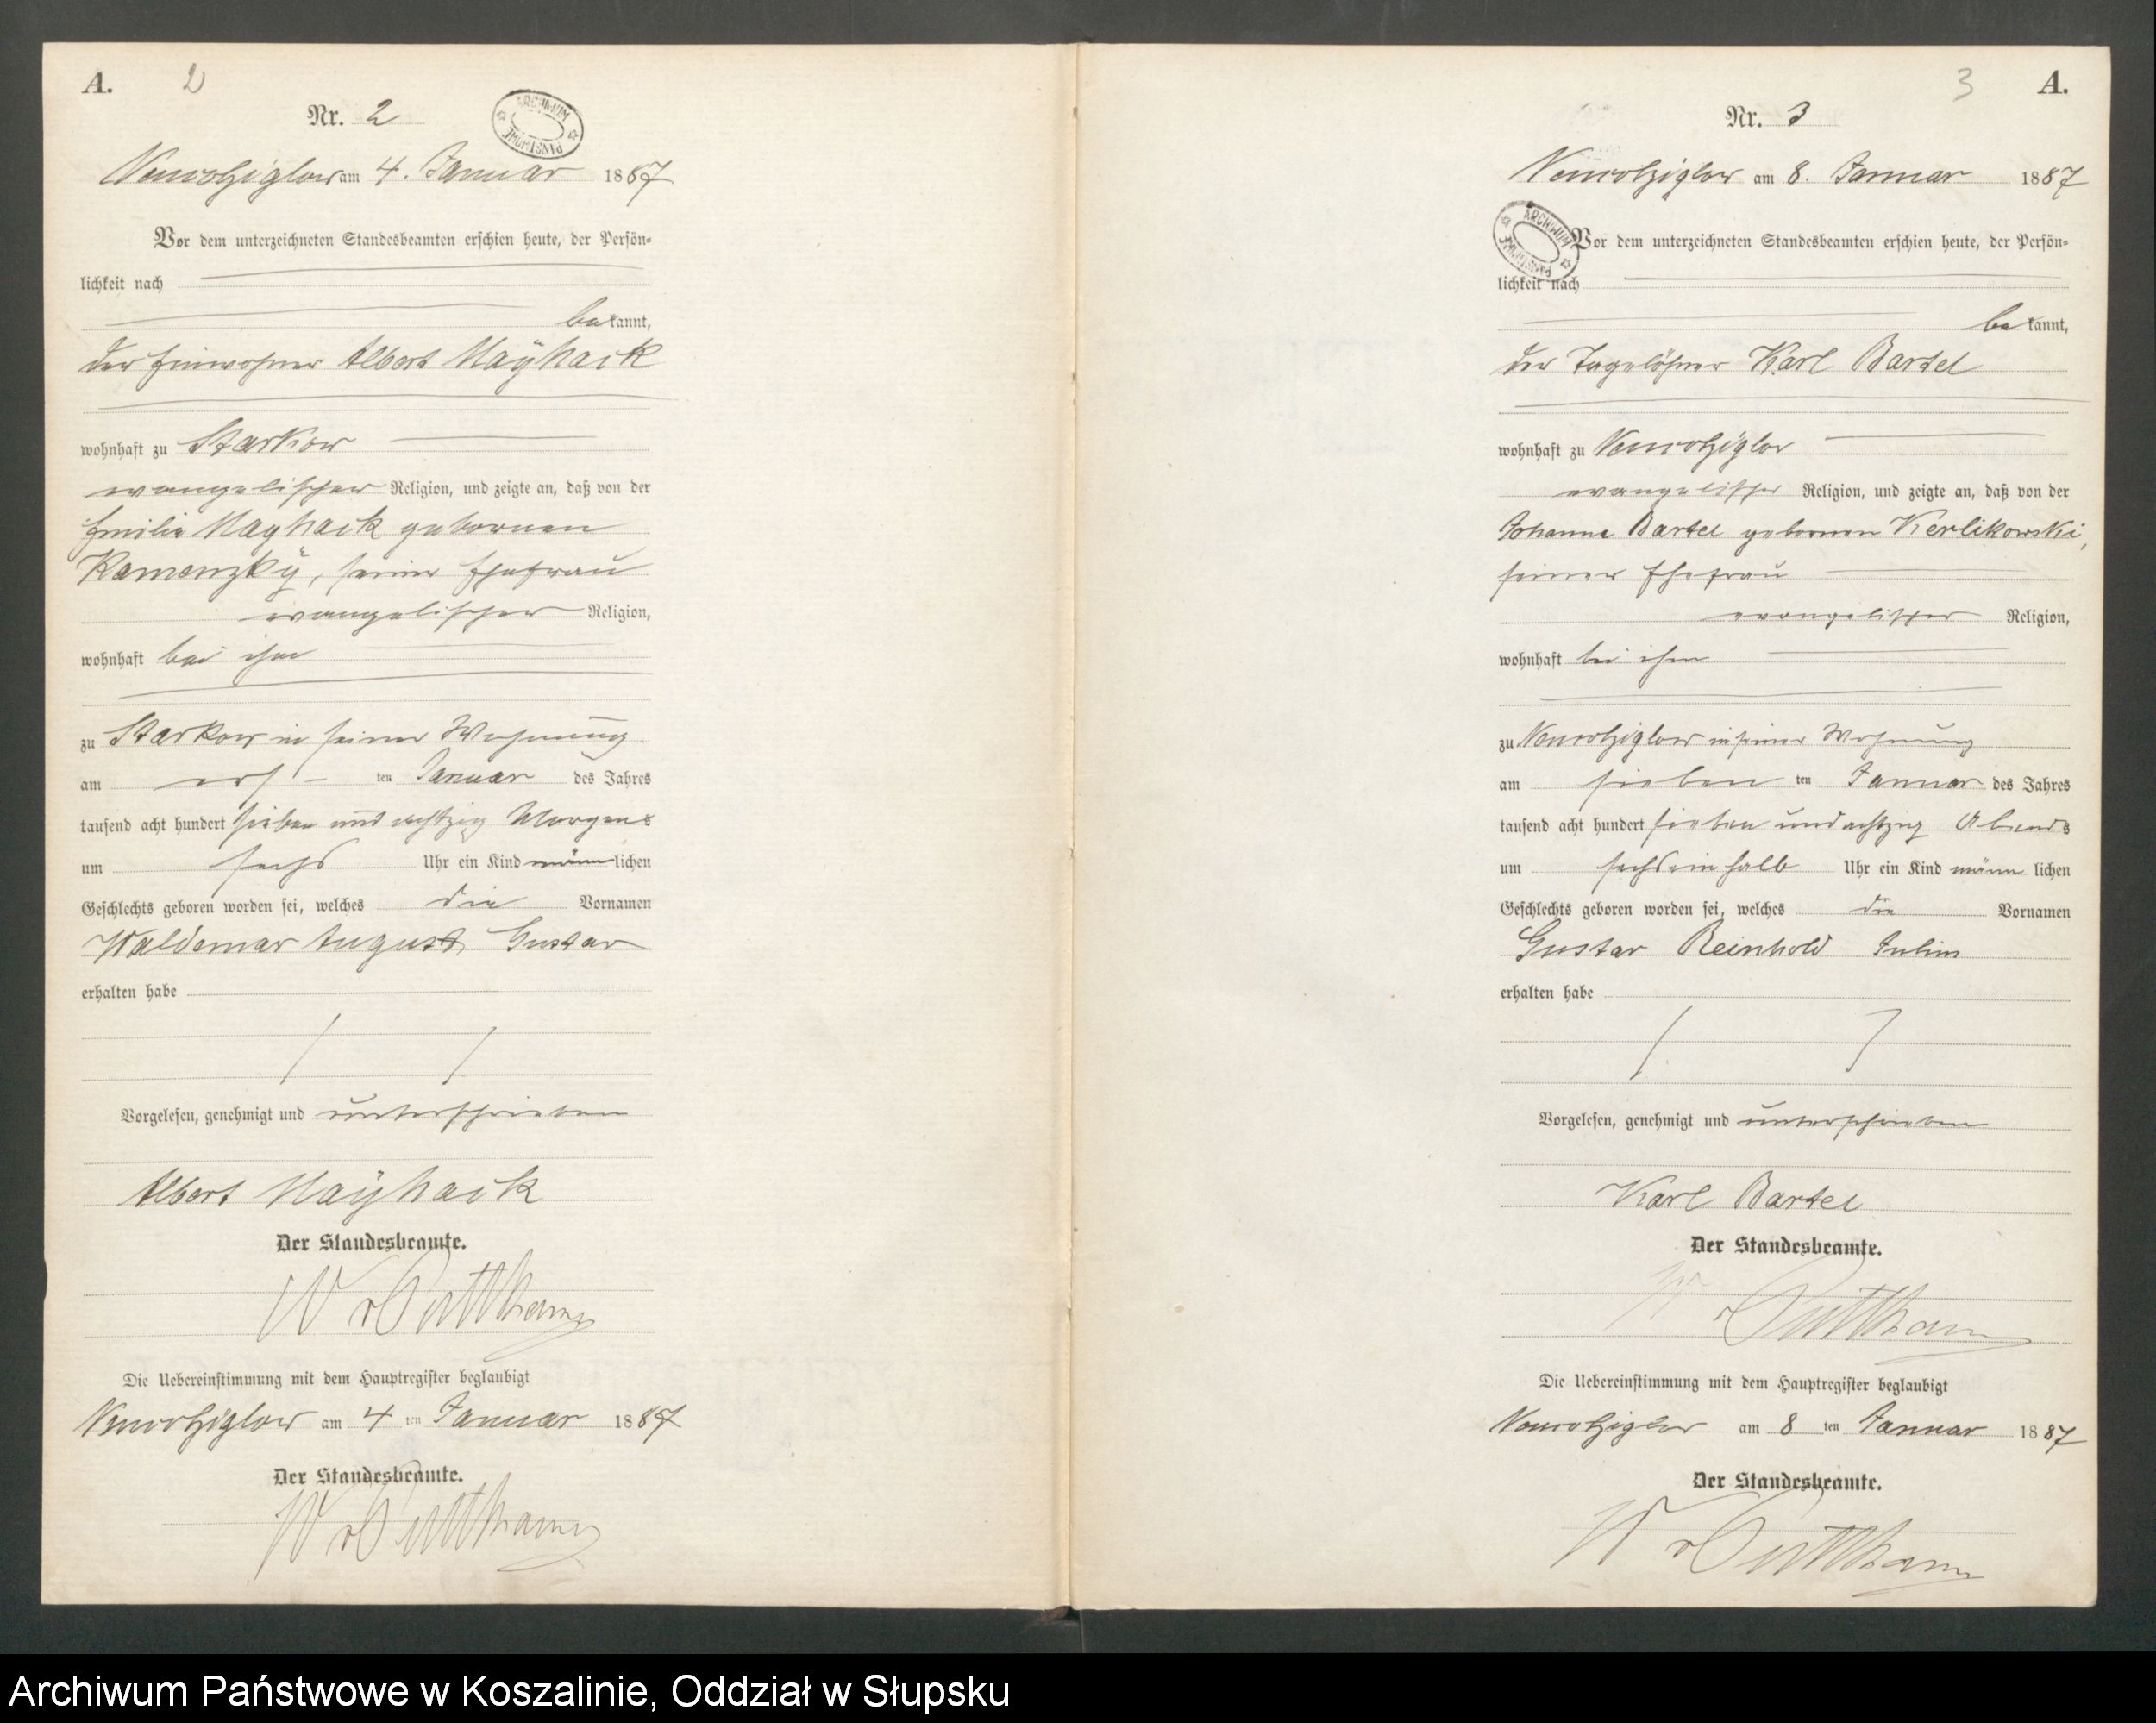 A. 2
Nr. 2
ARCHIWUM PAŃSTWOWE
Nemotziglow am 4. Januar 1887
Vor dem unterzeichneten Standesbeamten erschien heute, der Persön-
lichkeit nach
bekannt,
der Einwohner Albert Mayhack
wohnhaft zu Starkow
evangelischer Religion, und zeigte an, daß von der
Emilie Mayhack geborenen
Kamenzky, seiner Ehefrau
evangelischer Religion,
wohnhaft bei ihm
zu Starkow in seiner Wohnung
am ers ten Januar des Jahres
tausend acht hundert sieben und achtzig Morgens
um sechs Uhr ein Kind männlichen
Geschlechts geboren worden sei, welches die Vornamen
Waldemar August Gustav
erhalten habe
Vorgelesen, genehmigt und unterschrieben
Albert Mayhack
Der Standesbeamte.
W v Puttkamer
Die Uebereinstimmung mit dem Hauptregister beglaubigt
Nemotziglow am 4 ten Januar 1887
Der Standesbeamte.
W v Puttkamer
3 A.
Nr. 3
Nemotziglow am 8. Januar 1887
ARCHIWUM PAŃSTWOWE
Vor dem unterzeichneten Standesbeamten erschien heute, der Persön-
lichkeit nach
bekannt,
der Tagelöhner Karl Bartel
wohnhaft zu Nemotziglow
evangelischer Religion, und zeigte an, daß von der
Johanna Bartel geborenen Kerlikowski,
seiner Ehefrau
evangelischer Religion,
wohnhaft bei ihm
zu Nemotziglow in seiner Wohnung
am sieben ten Januar des Jahres
tausend acht hundert sieben und achtzig Abends
um sechs ein halb Uhr ein Kind männlichen
Geschlechts geboren worden sei, welches die Vornamen
Gustav Reinhold Julius
erhalten habe
Vorgelesen, genehmigt und unterschrieben
Karl Bartel
Der Standesbeamte.
W v Puttkamer
Die Uebereinstimmung mit dem Hauptregister beglaubigt
Nemotziglow am 8 ten Januar 1887
Der Standesbeamte.
W v Puttkamer
Archiwum Państwowe w Koszalinie, Oddział w Słupsku